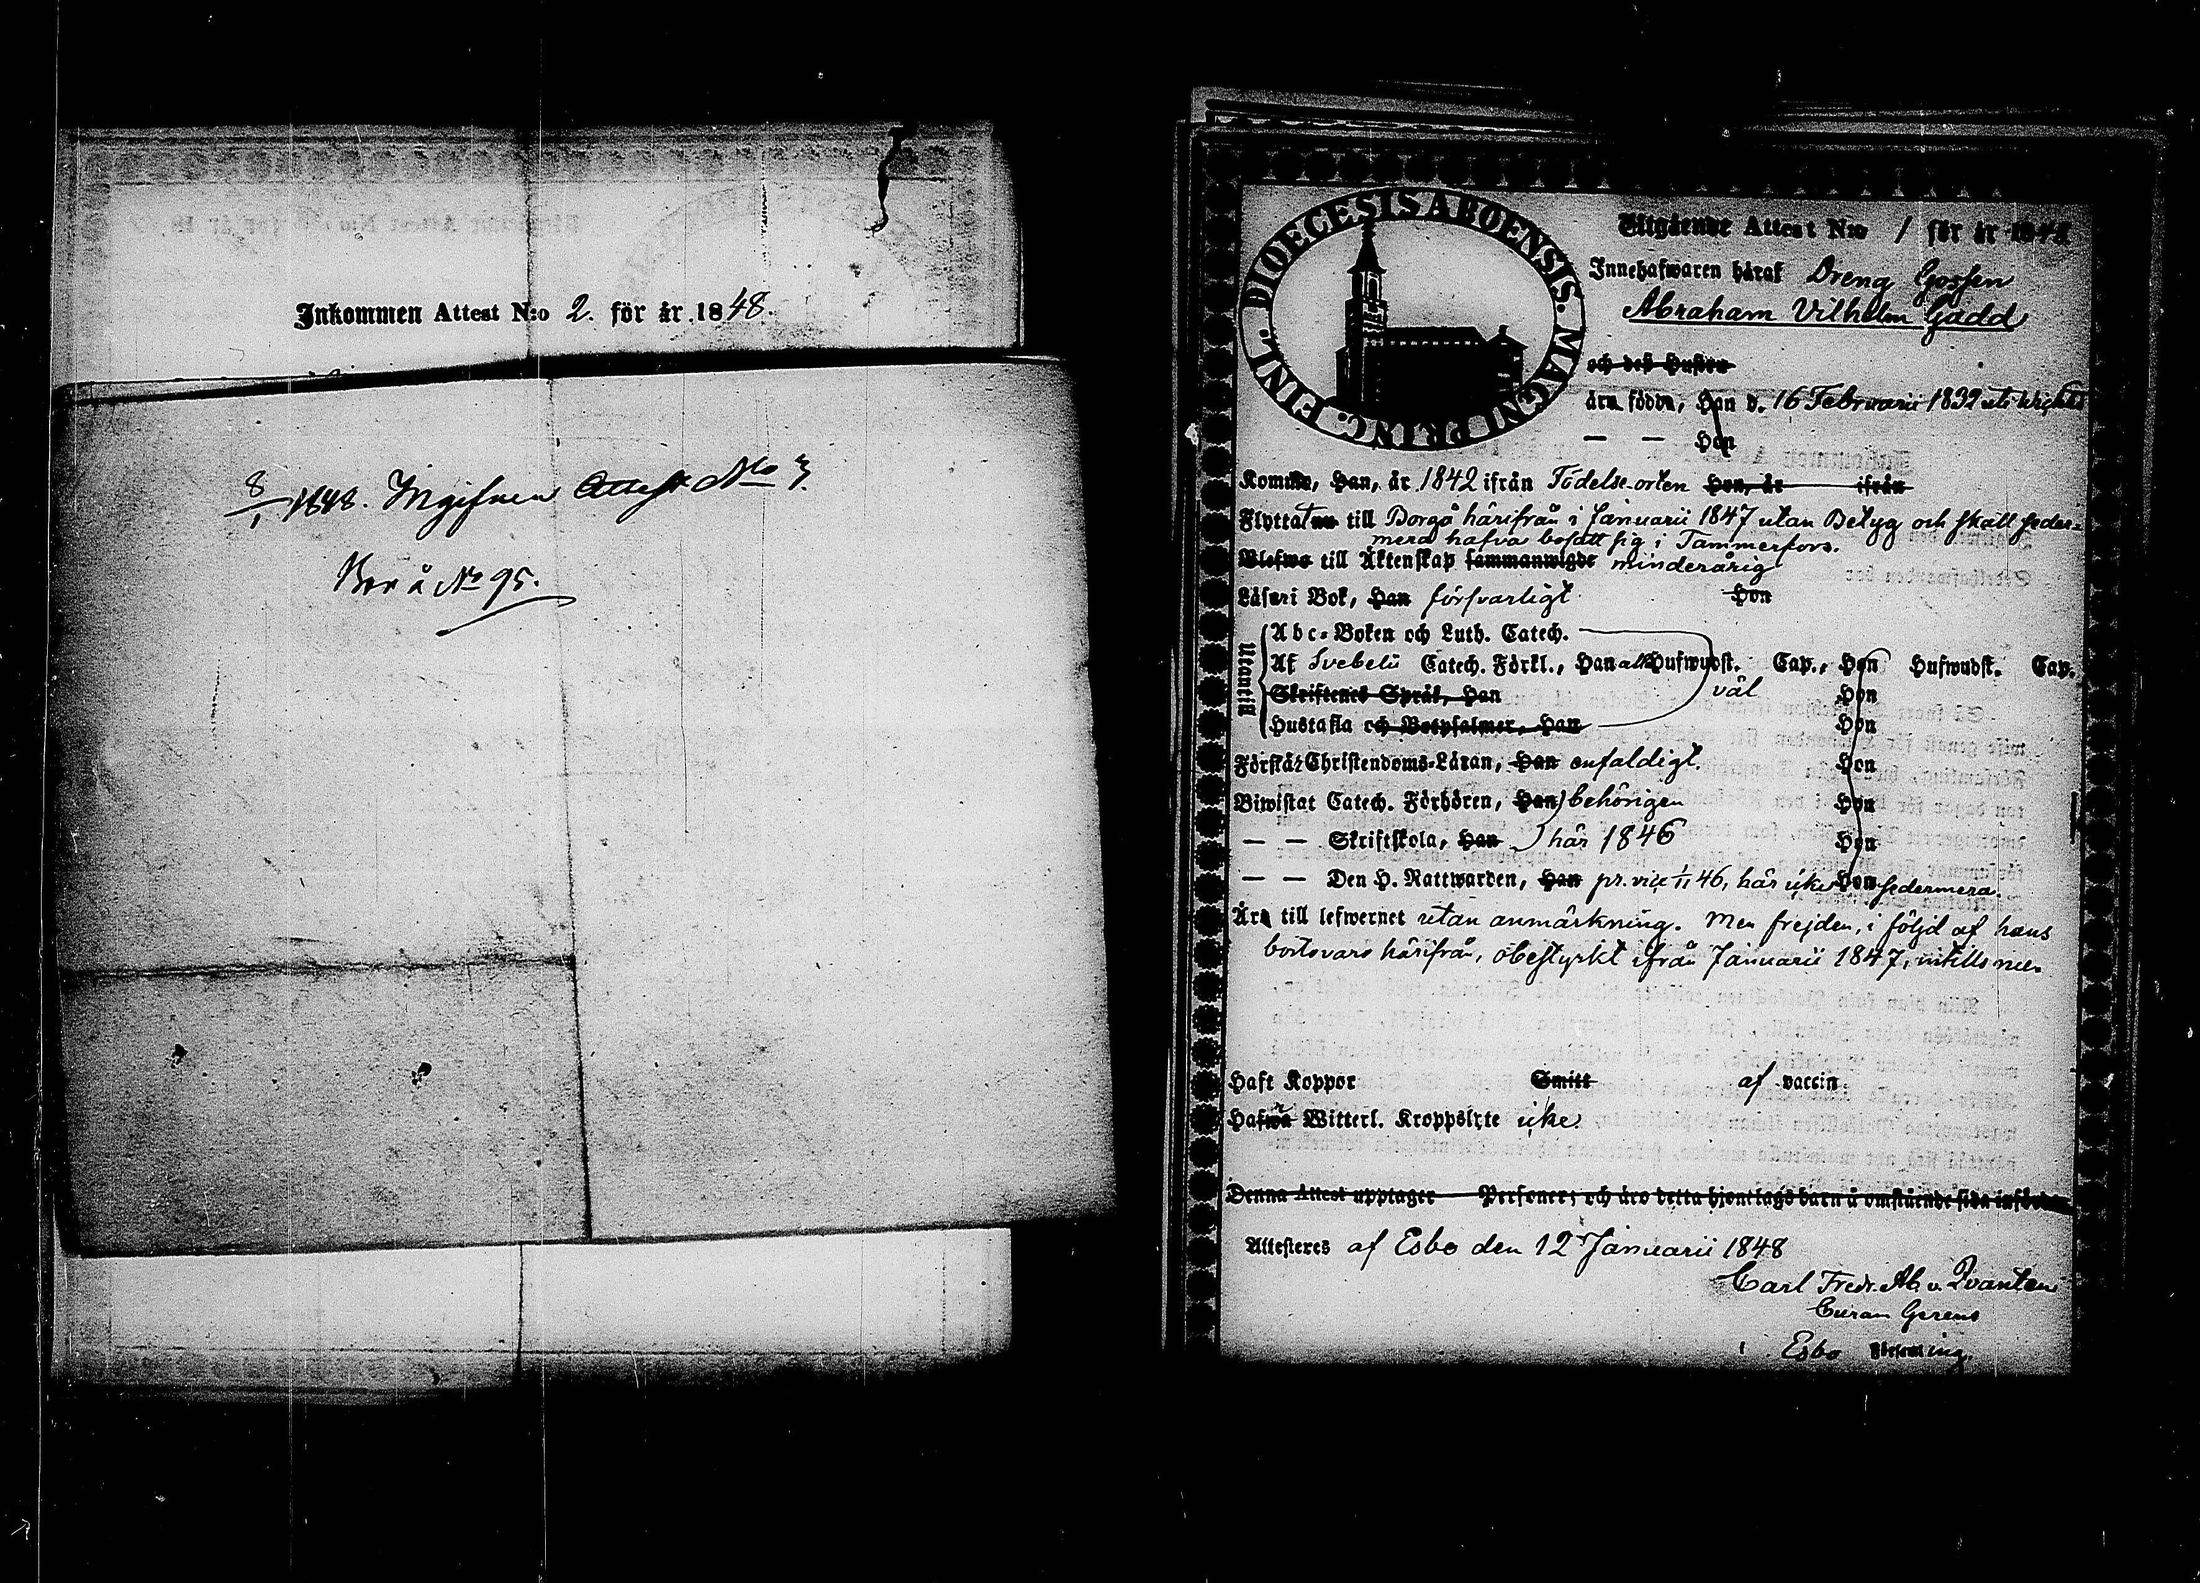 Inkommen Attest N:o 2. för år 1848.
8/1 1848. Ingifven Attest No 3.
No 95.
DIOECESIS ABOENSIS. MAGNI PRINC. FINL.
Utgående Attest N:o 1 för år 1848
Innehafwaren häraf Dreng Gossen
Abraham Vilhelm Gadd
och deß Hustru
äro födde, Han d. 16 Februarii 1832 uti
— — Hon
Komne, Han, år 1842 ifrån Födelse-orten Hon, år ifrån
Flyttat till Borgå härifrån i Januarii 1847 utan Betyg och skall seder-
mera hafva bosatt sig i Tammerfors.
Blefwo till Äktenskap sammanwigde minderårig
Läser i Bok, Han försvarligt Hon
Utantill
Abc-Boken och Luth. Catech.
Af Svebelii Catech. Förkl., Han alla Hufwudst. Cap., Hon Hufwudst. Cap.
väl
Skriftenes Språk, Han Hon
Hustafla och Botpsalmer, Han Hon
Förstår Christendoms-Läran, Han enfaldigt. Hon
Biwistat Catech. Förhören, Han behörigen Hon
— — Skriftskola, Han här 1846 Hon
— — Den H. Nattwarden, Han pr. vice 1/11 46, här icke Hon sedermera.
Äro till lefwernet utan anmärkning. Men frejden, i följd af hans
bortovaro härifrån, obestyrkt ifrån Januarii 1847, intills nu.
Haft Koppor Smitt af vaccin.
Hafwa Witterl. Kroppslyte icke.
Denna Attest upptager Personer; och äro detta hjonelags barn å omstående sida införde
Attesteres af Esbo den 12 Januarii 1848
Carl Fredr. Ab. v. Qvanten
Curam Gerens
i Esbo Församling.